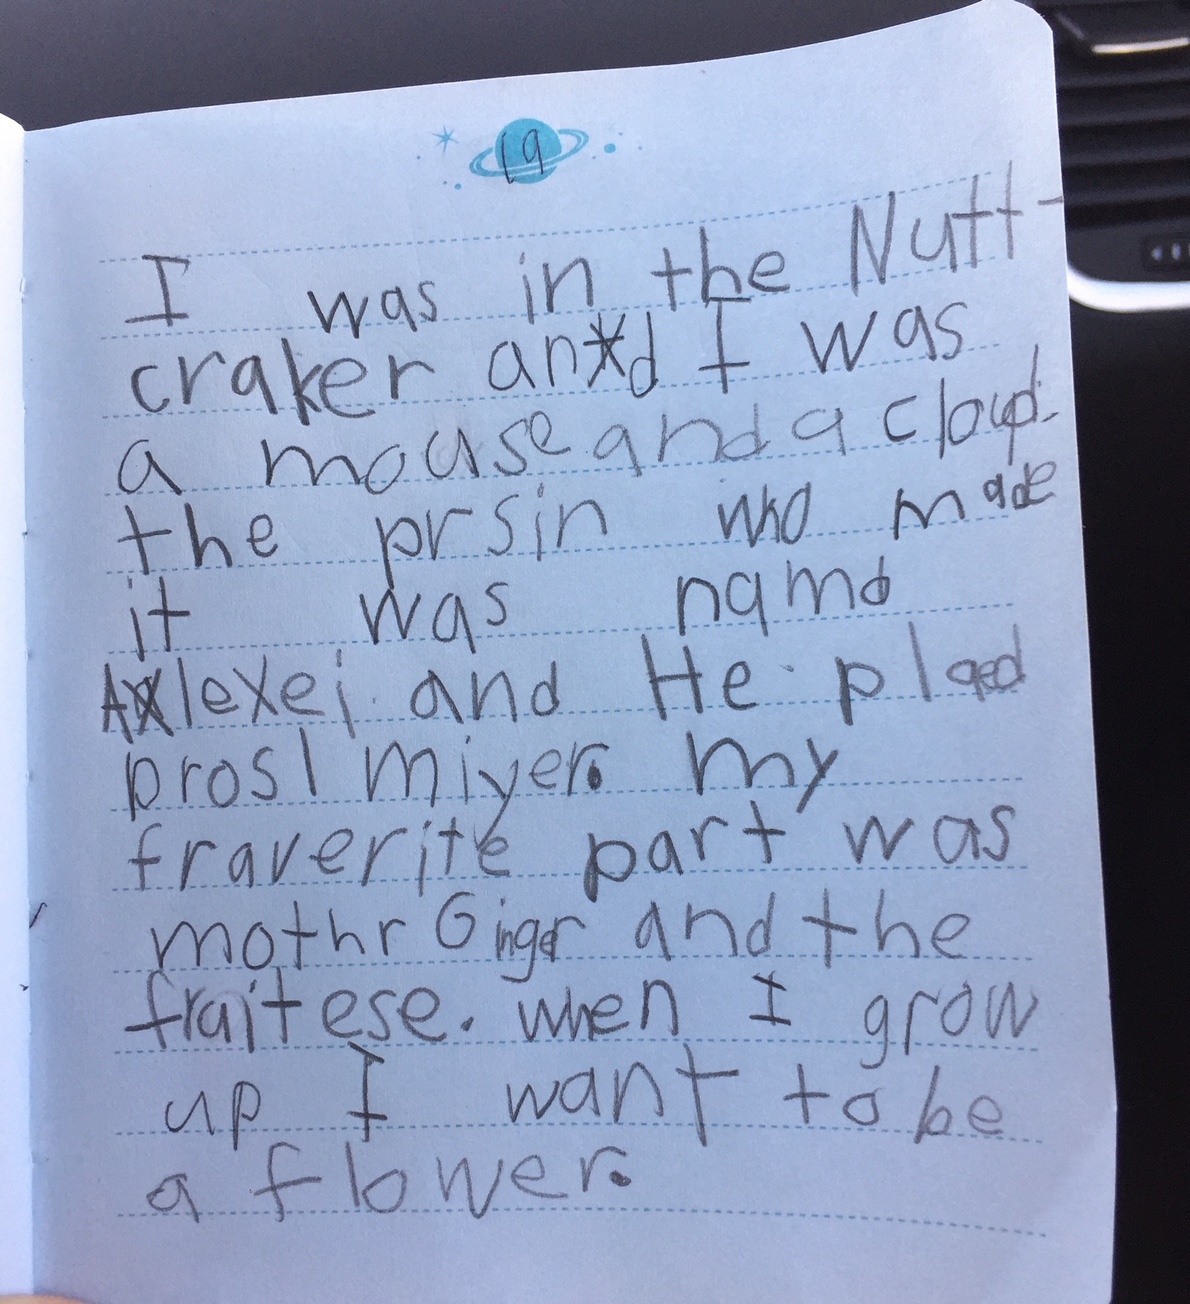 19
I was in the Nutt-
craker and I was
a mouse and a cloud.
the prsin who made
it was namd
Alexei and He plaed
prosl miyer. my
fraverite part was
mothr Ginger and the
fraitese. when I grow
up I want to be
a flower.